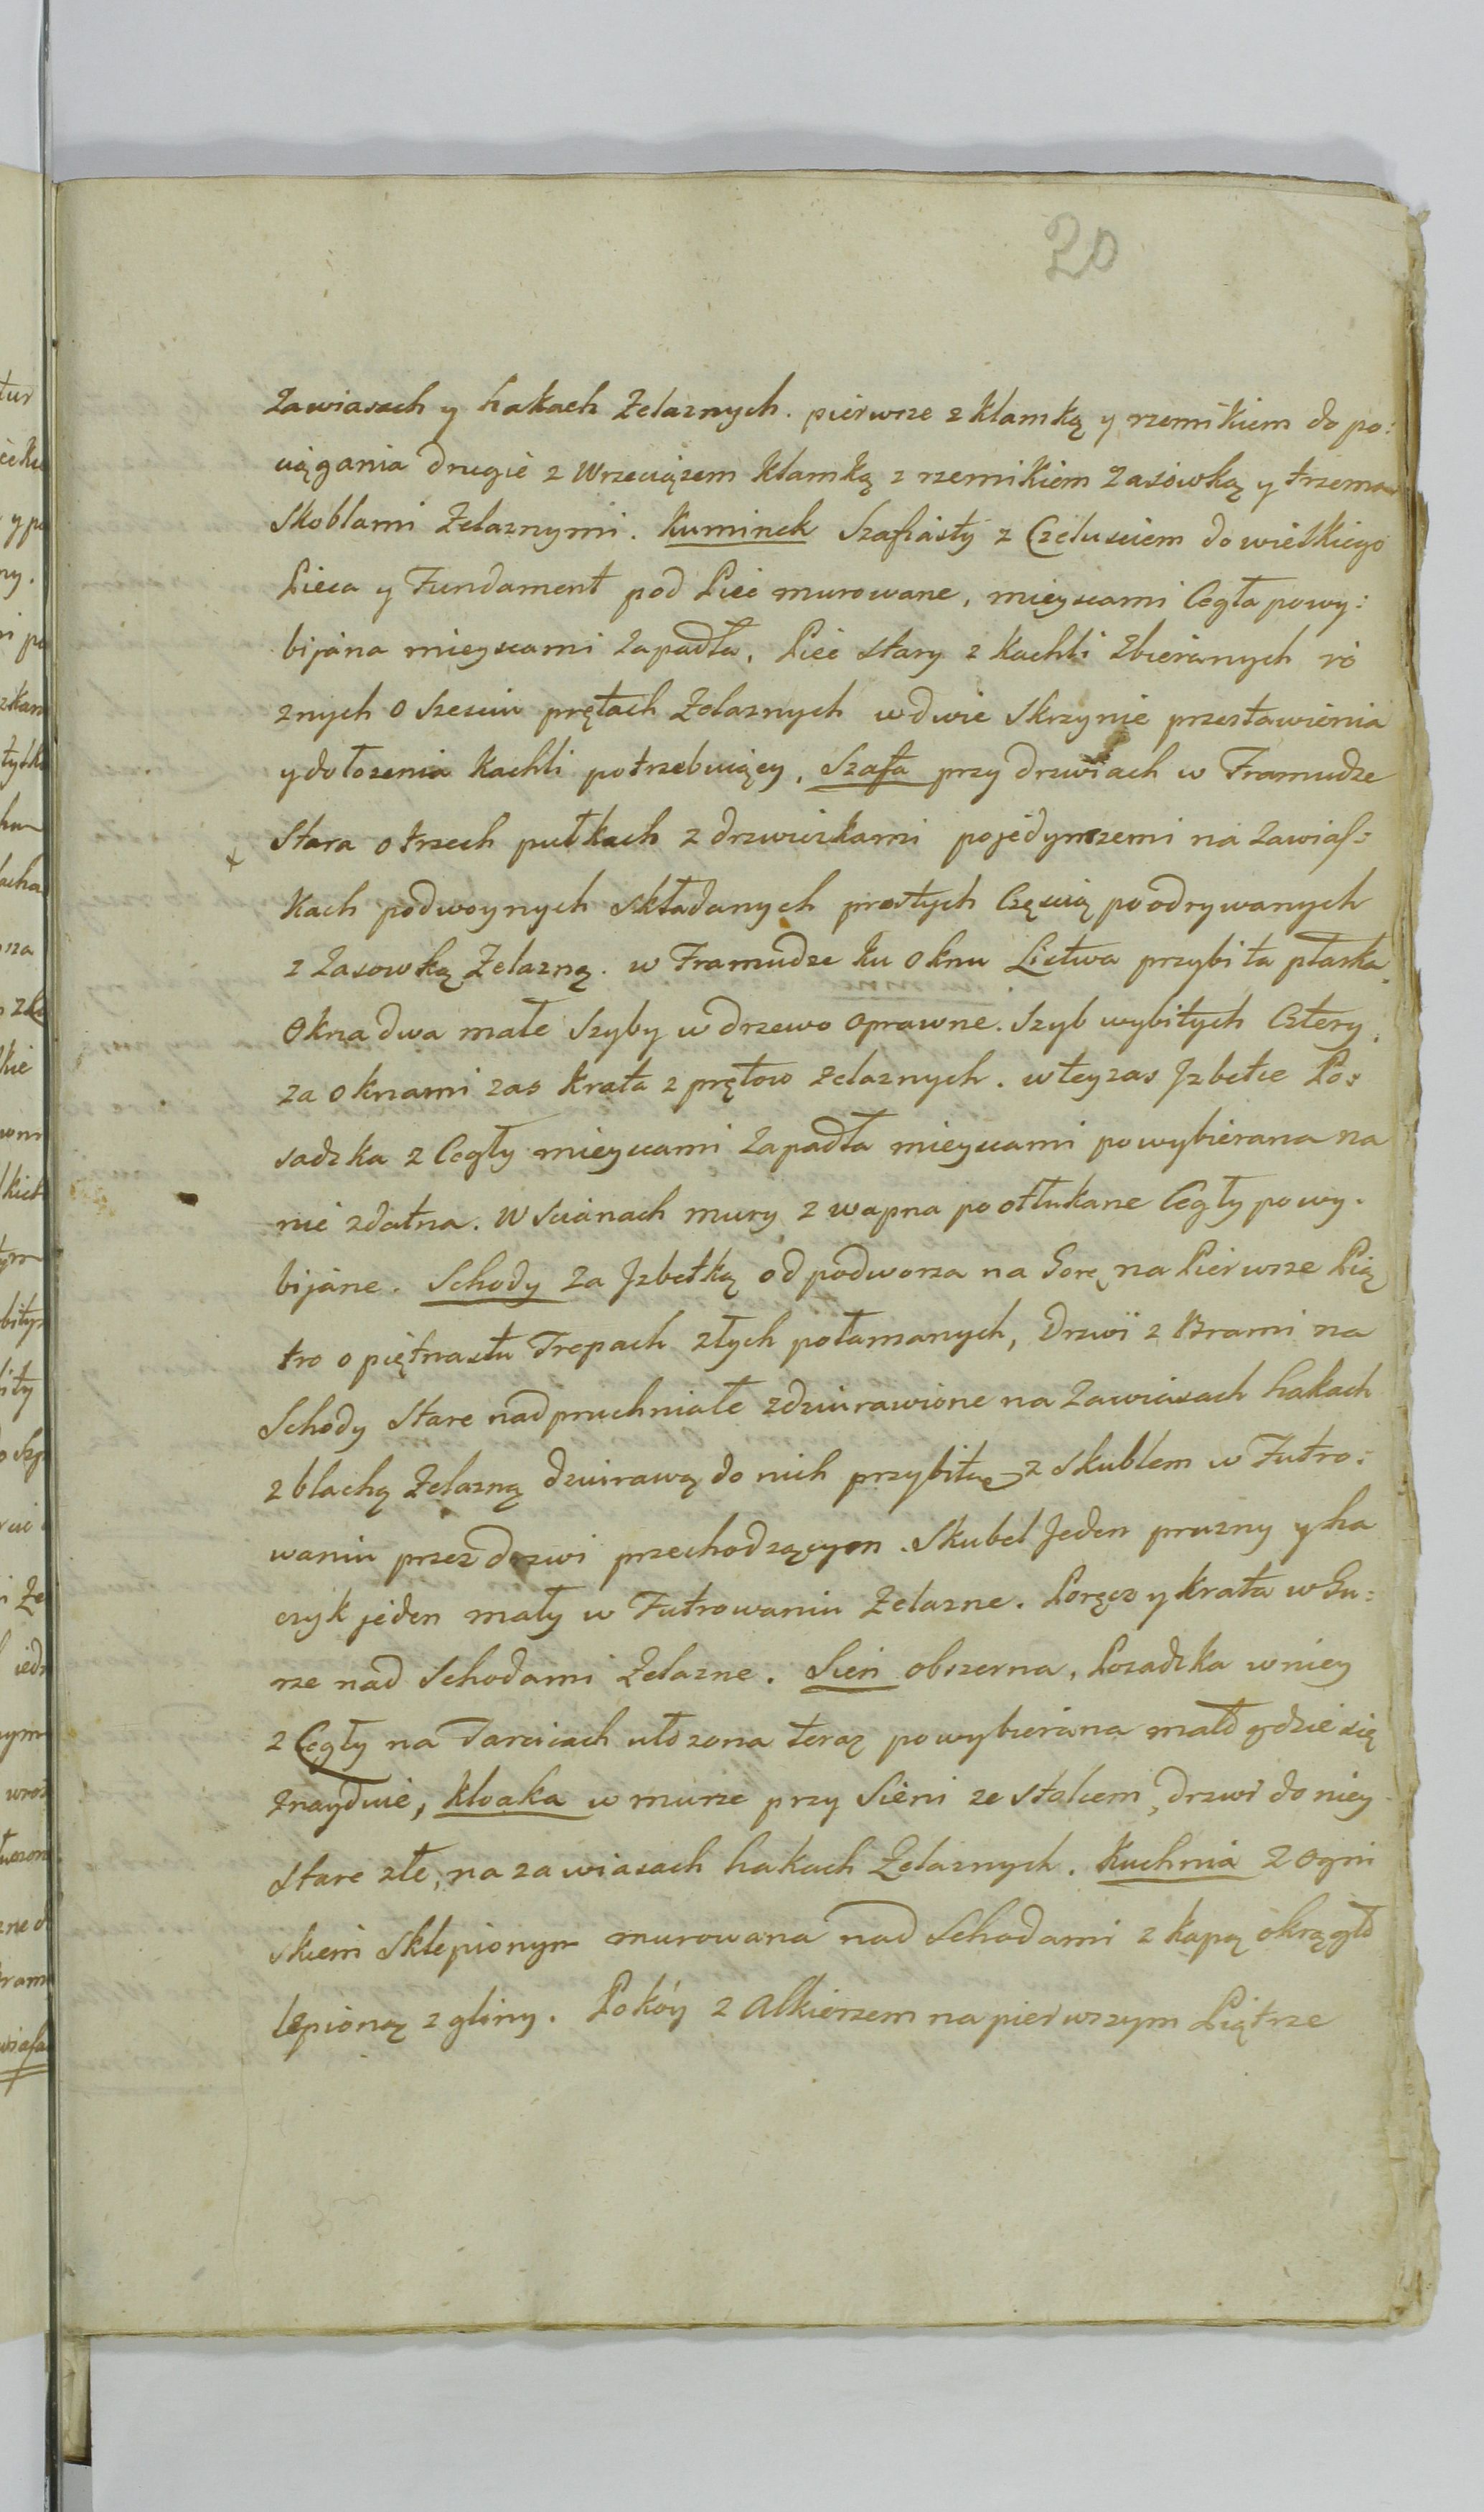 20
Zawiasach y hakach Zelaznych. pierwsze z klamką y rzemikiem do po:
ciągania drugie z Wrzeciązem Klamką z rzemikiem Zasówką y trzema
Skoblami Zelaznymi. Kuminek Szafiasty z Czelusciem do wielkiego
Pieca y Fundament pod Piec murowane, mieyscami Cegła powy:
bijana mieyscami Zapadła, Piec stary z Kachli Zbieranych ró
znych o szesciu prętach Zelaznych w dwie Skrzynie przestawienia
y dołozenia Kachli potrzebuiący, Szafa przy drzwiach w Framudze
Stara o trzech pułkach z drzwiczkami pojedynczemi na Zawias:
kach podwoynych składanych prostych Częscią poodrywanych
z Zasowką Zelazną. w Framudze ku oknu Listwa przybita płaska.
Okna dwa małe Szyby w drzewo oprawne. Szyb wybitych Cztery.
Za oknami zas Krata z prętow zelaznych. w teyzas Jzbetce Po:
sadzka z Cegły mieyscami Zapadła mieyscami powybierana na
nic zdatna. W Scianach mury z wapna poottukane Cegły powy.
bijane. Schody Za Jzbetką od podworza na Gorę na Pierwsze Pią
tro o piętnastu Trepach złych połamanych, Drzwi z Brami na
Schody Stare nadpruchniałe zdziurawione na Zawiasach hakach
z blachą Zelazną dziurawą do nich przybitą z skublem w Futro:
waniu przez drzwi przechodzącym. Skubel Jeden pruzny y ha
czyk jeden mały w Futrowaniu Zelazne. Poręcz y Krata w Gu:
rze nad Schodami Zelazne. Sień obszerna, Posadzka w niey
z Cegły na Tarcicach ułozona teraz powybierana mało gdzie się
znayduie, Kloaka w murze przy Sieni ze stolcem, drzwi do niey
Stare złe, na zawiasach hakach Zelaznych. Kuchnia z ogni
skiem Sklepionym murowana nad Schodami z kapą okrągło
lepioną z gliny. Pokóy z Alkierzem na pierwszym Piątrze